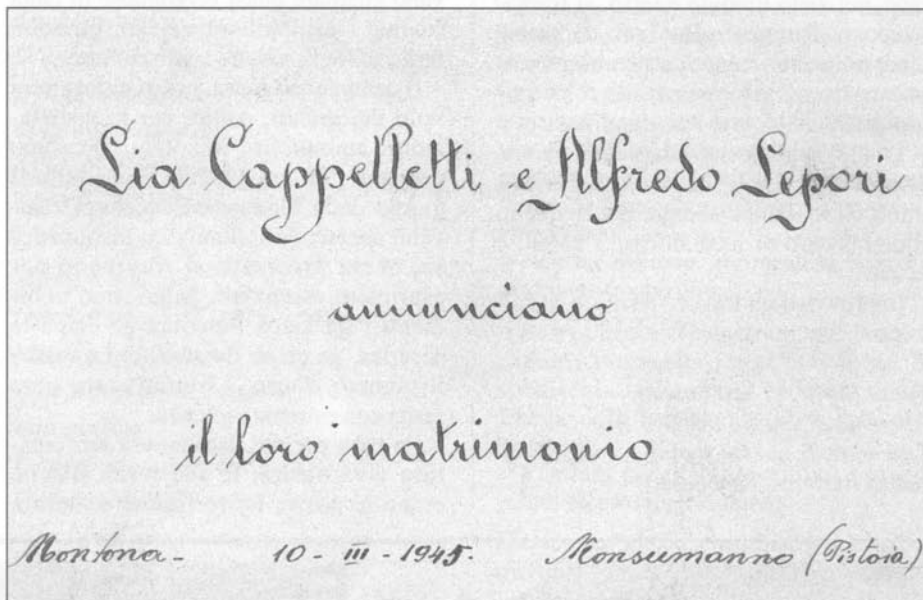 Lia Cappelletti e Alfredo Lepori
annunciano
il loro matrimonio
Montona - 10 - III - 1945. Monsummanno (Pistoia)